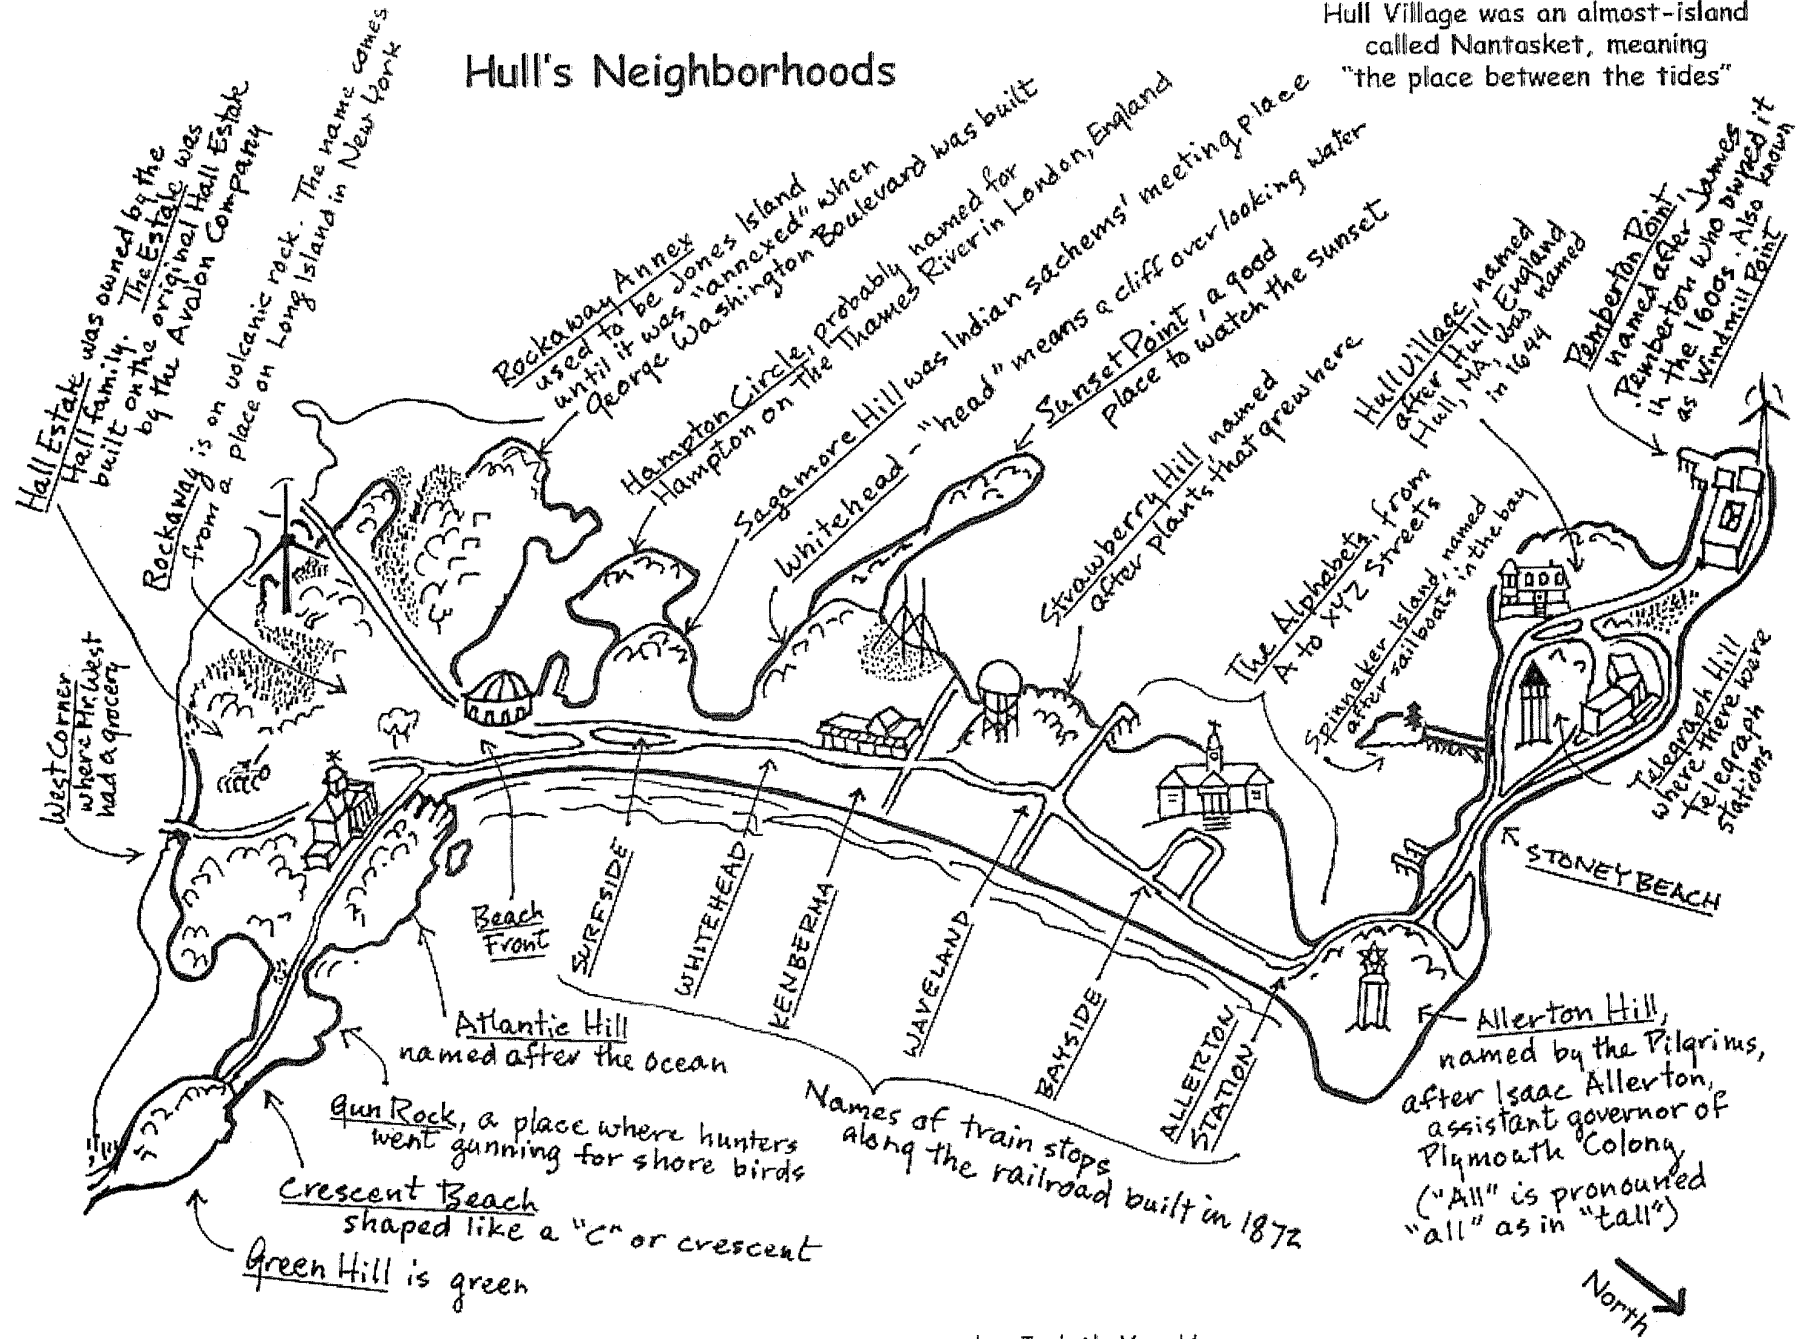 Hull's Neighborhoods
Hull Village was an almost-island
called Nantasket, meaning
"the place between the tides"
Hall Estate was owned by the
Hall family. The Estate was
built on the original Hall Estate
by the Avalon Company
Rockaway is on volcanic rock. The name comes
from a place on Long Island in New York
Rockaway Annex
used to be Jones Island
until it was "annexed" when
George Washington Boulevard was built
Hampton Circle, probably named for
Hampton on the Thames River in London, England
Sagamore Hill was Indian sachems' meeting place
Whitehead - "head" means a cliff overlooking water
Sunset Point, a good
place to watch the sunset
Strawberry Hill, named
after plants that grew here
The Alphabets, from
A to XYZ Streets
Spinnaker Island, named
after sailboats in the bay
Hull Village, named
after Hull, England
Hull, MA, was named
in 1644
Pemberton Point,
named after James
Pemberton who owned it
in the 1600s. Also known
as Windmill Point
Telegraph Hill
where there were
telegraph
stations
STONEY BEACH
West Corner
where Mr. West
had a grocery
Beach
Front
SURFSIDE
WHITEHEAD
KENBERMA
WAVELAND
BAYSIDE
ALLERTON
STATION
Names of train stops
along the railroad built in 1872
Atlantic Hill
named after the ocean
Gun Rock, a place where hunters
went gunning for shore birds
Crescent Beach
shaped like a "C" or crescent
Green Hill is green
Allerton Hill,
named by the Pilgrims,
after Isaac Allerton,
assistant governor of
Plymouth Colony
("All" is pronouned
"all" as in "tall")
North